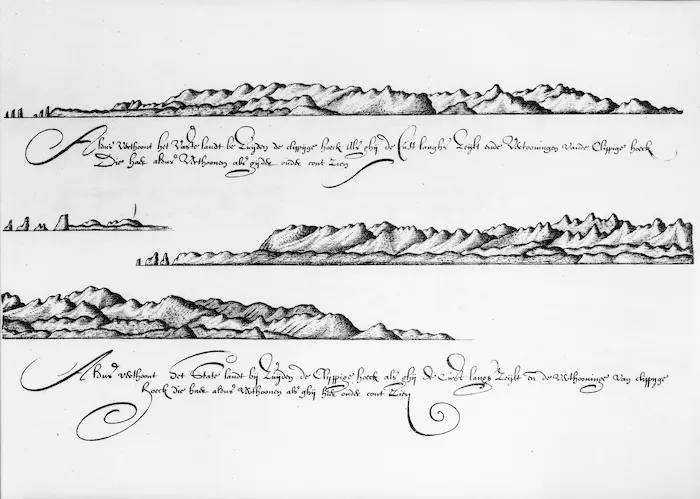 Aldus Verthoont het Vaste landt be Zuijden de clippige hoeck Als ghij de Cust langhs Zeijlt ende Vertooningen Vande Clippige hoeck
Die hade aldus Verthoonen als onde cont Zien
Aldus verthoont Het State landt bij Zuijden de Clippige hoeck als ghij de Cust langs Zeijlt de Verthooninge Van clippige
hoeck die hade aldus Verthoonen als ghij onde cont Zien